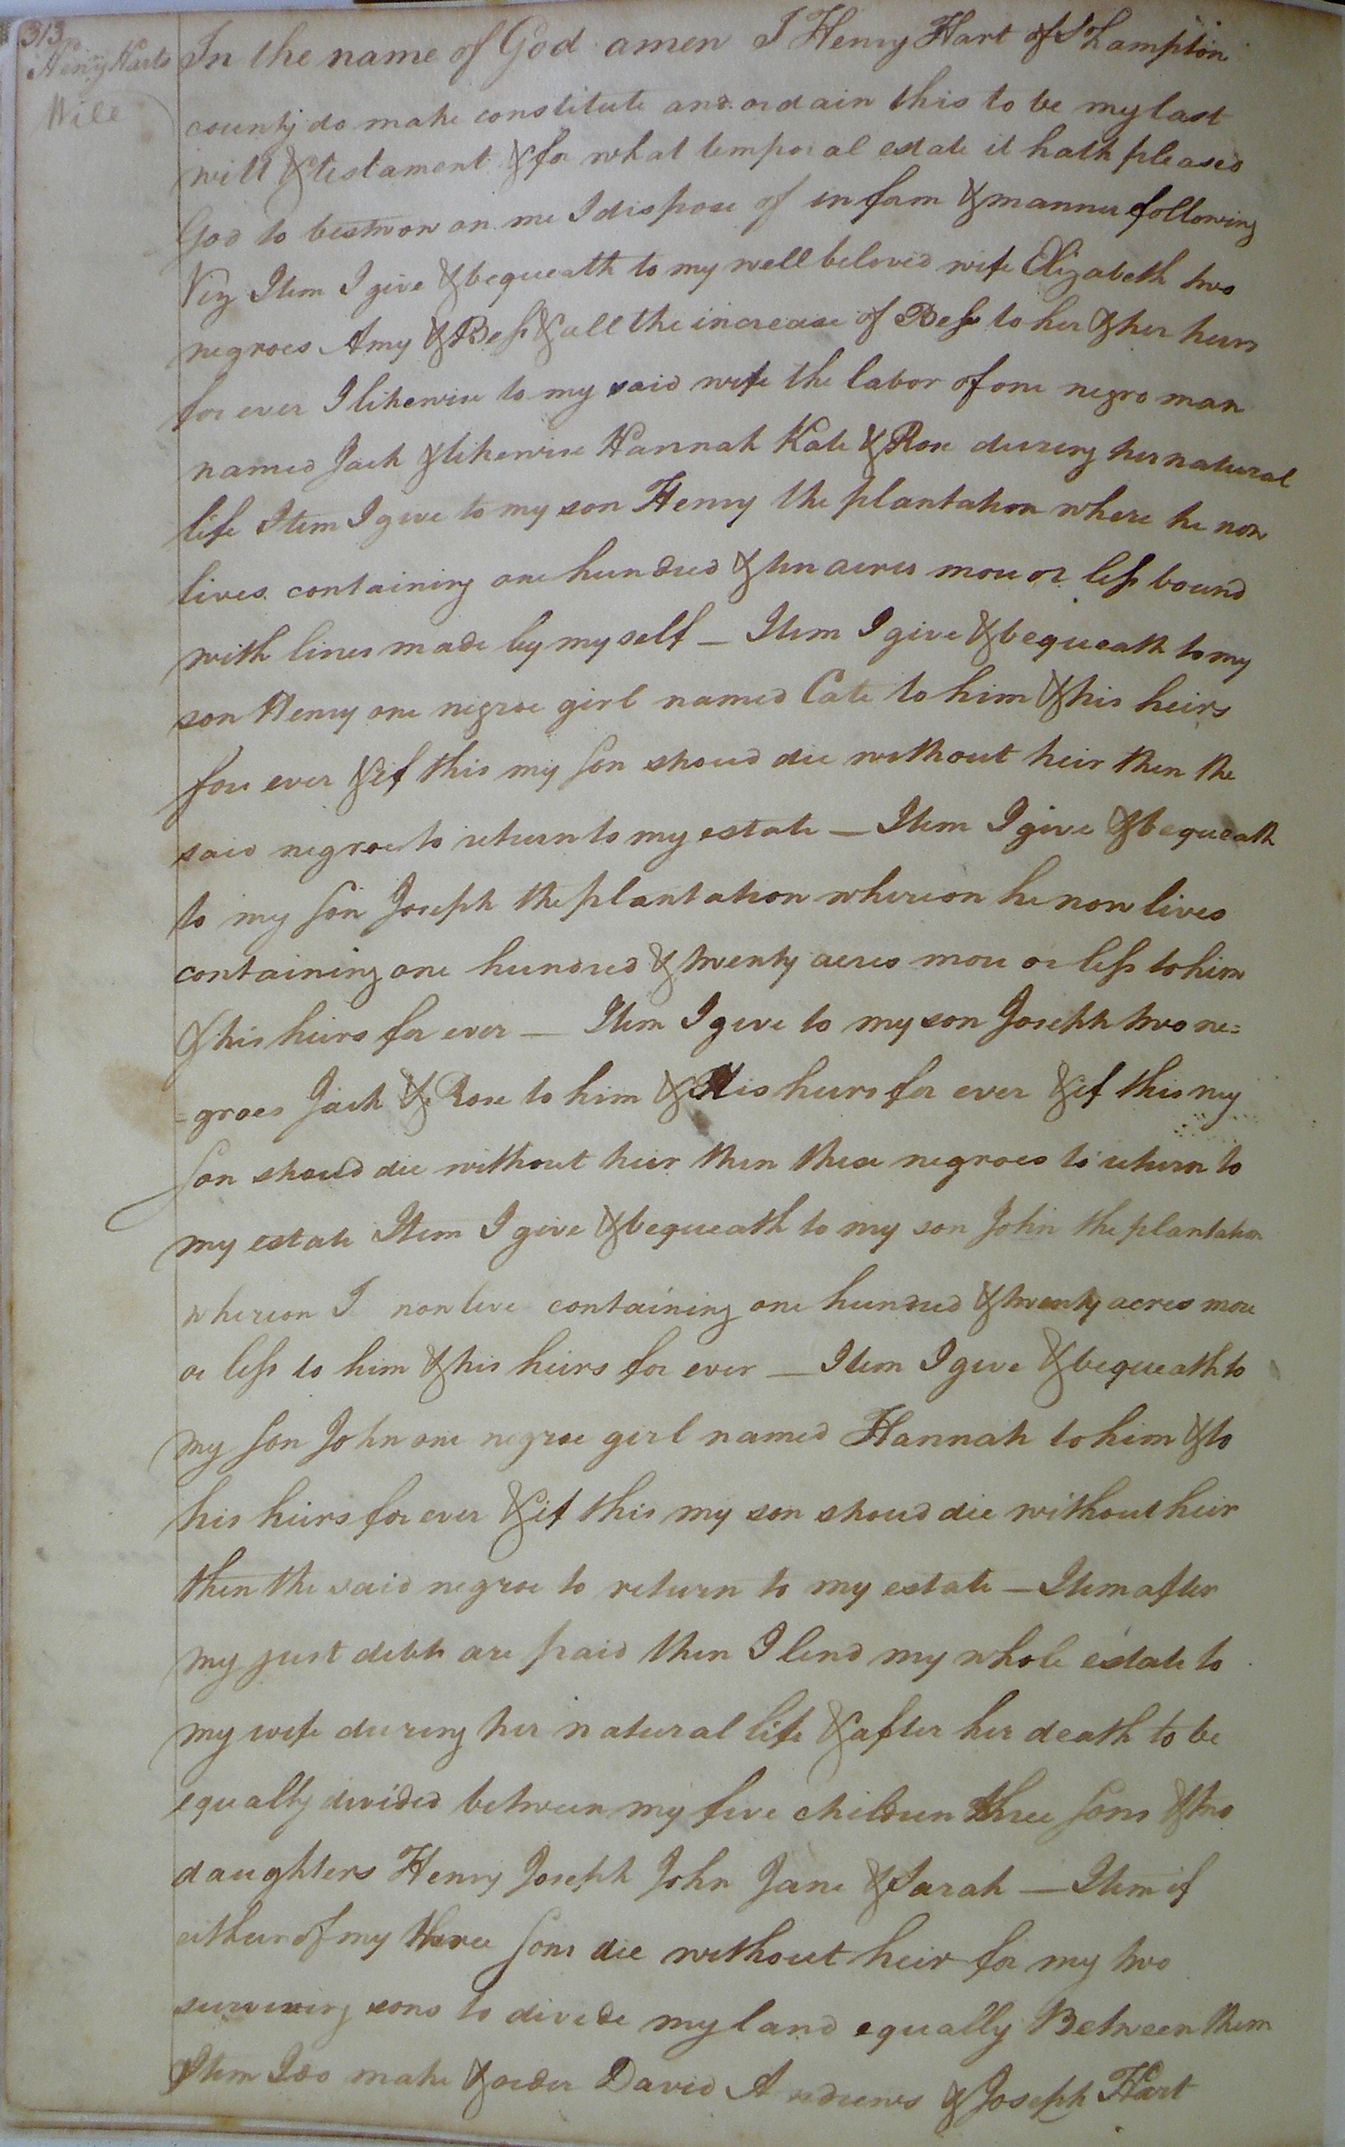 313
Henry Harts
Will
In the name of God amen I Henry Hart of SoHampton
county do make constitute and ordain this to be my last
will & testament & for what temporal estate it hath pleased
God to bestwow on me I dispose of in form & manner following
Viz Item I give & bequeath to my well beloved wife Elizabeth two
negroes Amy & Bess & all the increase of Bess to her & her heirs
for ever I likewise to my said wife the labor of one negro man
named Jack & likewise Hannah Kate & Rose during her natural
life Item I give to my son Henry the plantation where he now
lives containing one hundred & ten acres more or less bound
with lines made by my self — Item I give & bequeath to my
son Henry one negroe girl named Cate to him & his heirs
fore ever & if this my son shoud die without heir then the
said negroe to return to my estate — Item I give & bequeath
to my son Joseph the plantation whereon he now lives
containing one hundred & twenty acres more or less to him
& his heirs for ever — Item I give to my son Joseph two ne=
=groes Jack & Rose to him & His heirs for ever & if this my
son shoud die without heir then these negroes to return to
my estate Item I give & bequeath to my son John the plantation
whereon I now live containing one hundred & twenty acres more
or less to him & his heirs for ever — Item I give & bequeath to
my son John one negroe girl named Hannah to him & to
his heirs for ever & if this my son shoud die without heir
then the said negroe to return to my estate — Item after
my just debts are paid then I lend my whole estate to
my wife during her natural life & after her death to be
equally divided between my five children three sons & two
daughters Henry Joseph John Jane & Sarah — Item if
either of my three sons die without heir for my two
surviving sons to divide my land equally Between them
Item I do make & order David Andrews & Joseph Hart